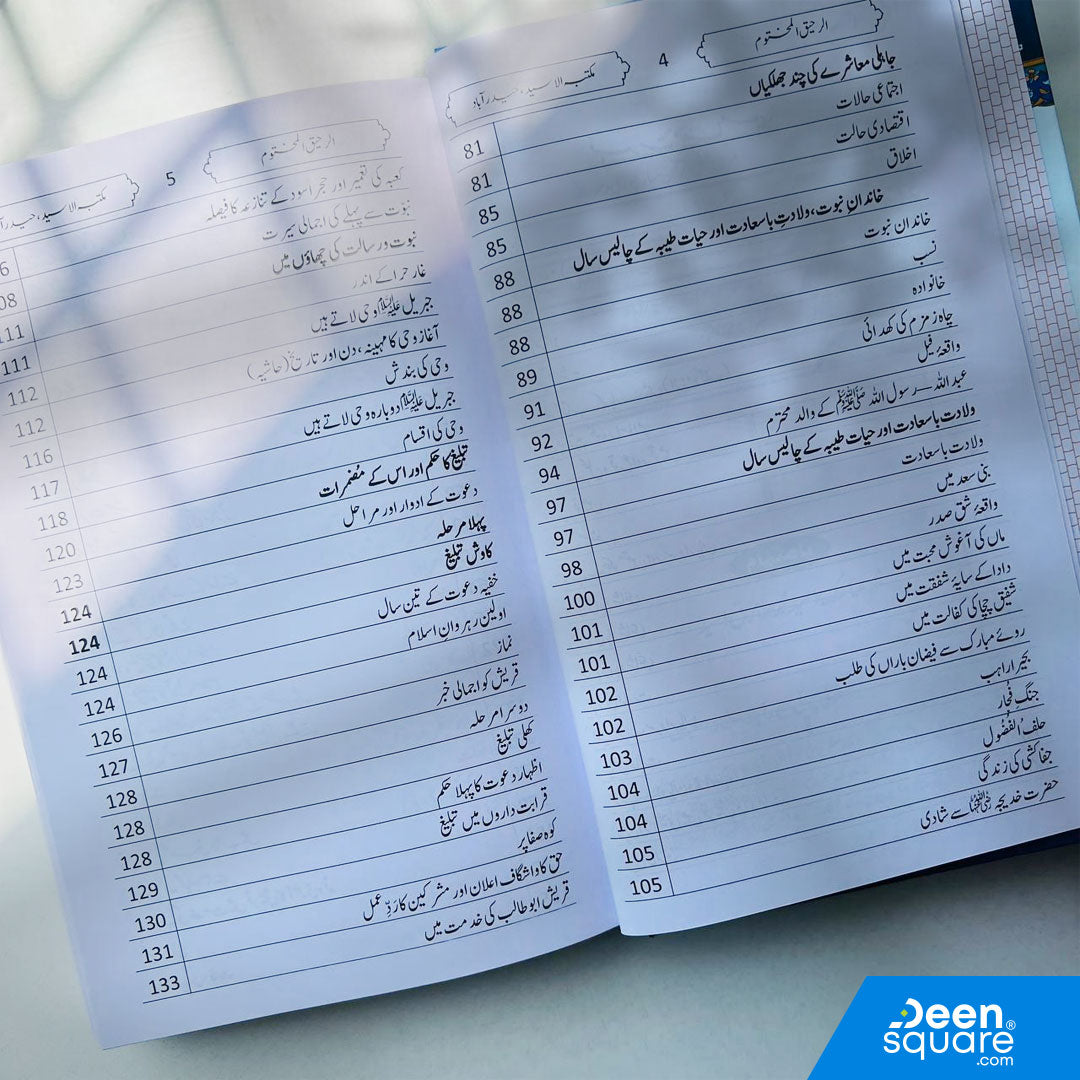 الرحیق المختوم 4 مکتبہ الاسید، حیدرآباد
جاہلی معاشرے کی چند جھلکیاں 81
اجتماعی حالات 81
اقتصادی حالت 85
اخلاق 85
خاندانِ نبوت، ولادتِ باسعادت اور حیات طیبہ کے چالیس سال 88
خاندان نبوت 88
نسب 88
خانوادہ 89
چاہ زمزم کی کھدائی 91
واقعۂ فیل 92
عبد اللہ — رسول اللہ ﷺ کے والد محترم 94
ولادت باسعادت اور حیات طیبہ کے چالیس سال 97
ولادت باسعادت 97
بنی سعد میں 98
واقعۂ شق صدر 100
ماں کی آغوش محبت میں 101
دادا کے سایۂ شفقت میں 101
شفیق چچا کی کفالت میں 102
روئے مبارک سے فیضان باراں کی طلب 102
بحیرا راہب 103
جنگِ فُجار 104
حلف ُالفُضُول 104
جفاکشی کی زندگی 105
حضرت خدیجہ رضی اللہ عنہا سے شادی 105
الرحیق المختوم 5 مکتبہ الاسید، حیدرآبا
کعبہ کی تعمیر اور حجر اسود کے تنازعہ کا فیصلہ 6
نبوت سے پہلے کی اجمالی سیرت 08
نبوت ورسالت کی چھاؤں میں 111
غار حرا کے اندر 111
جبریل علیہ السلام وحی لاتے ہیں 112
آغاز وحی کا مہینہ، دن اور تاریخ (حاشیہ) 112
وحی کی بندش 116
جبریل علیہ السلام دوبارہ وحی لاتے ہیں 117
وحی کی اقسام 118
تبلیغ کا حکم اور اس کے مُضمرات 120
دعوت کے ادوار اور مراحل 123
پہلا مرحلہ 124
کاوش تبلیغ 124
خفیہ دعوت کے تین سال 124
اولین رہروانِ اسلام 124
نماز 126
قریش کو اجمالی خبر 127
دوسرا مرحلہ 128
کھلی تبلیغ 128
اظہار دعوت کا پہلا حکم 128
قرابت داروں میں تبلیغ 129
کوہ صفا پر 130
حق کا واشگاف اعلان اور مشرکین کا رَدِّ عمل 131
قریش ابو طالب کی خدمت میں 133
Deen
square®
.com